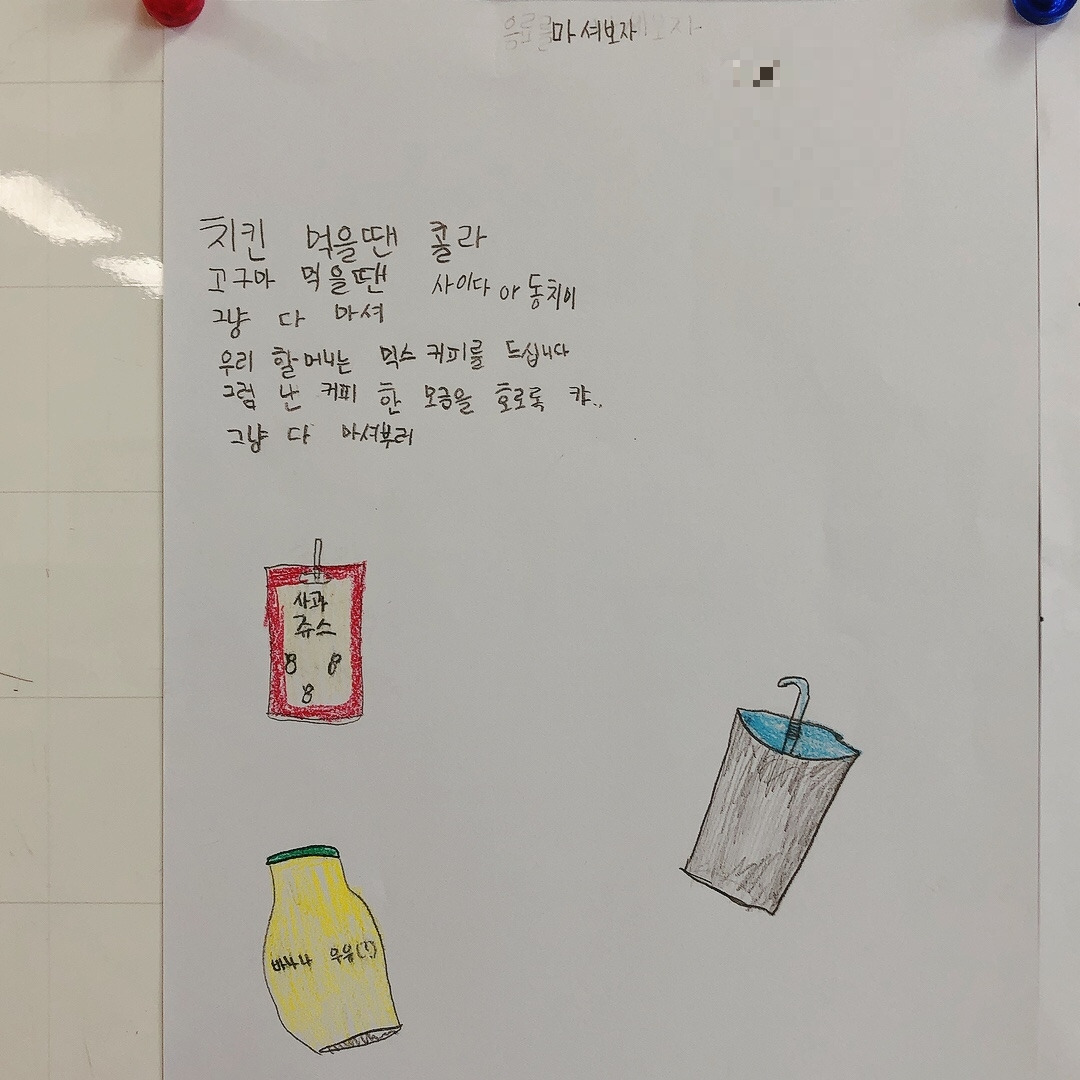 마셔보자
치킨 먹을땐 콜라
고구마 먹을땐 사이다 아 동치미
그냥 다 마셔
우리 할머니는 믹스 커피를 드십니다
그럼 난 커피 한 모금을 호로록 캬..
그냥 다 마셔부러
사과
쥬스
바나나 우유(?)